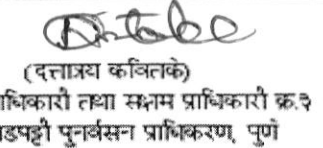 (दत्तात्रय कवितके)
धिकारी तथा सक्षम प्राधिकारी क्र.३
डपट्टी पुनर्वसन प्राधिकरण, पुणे